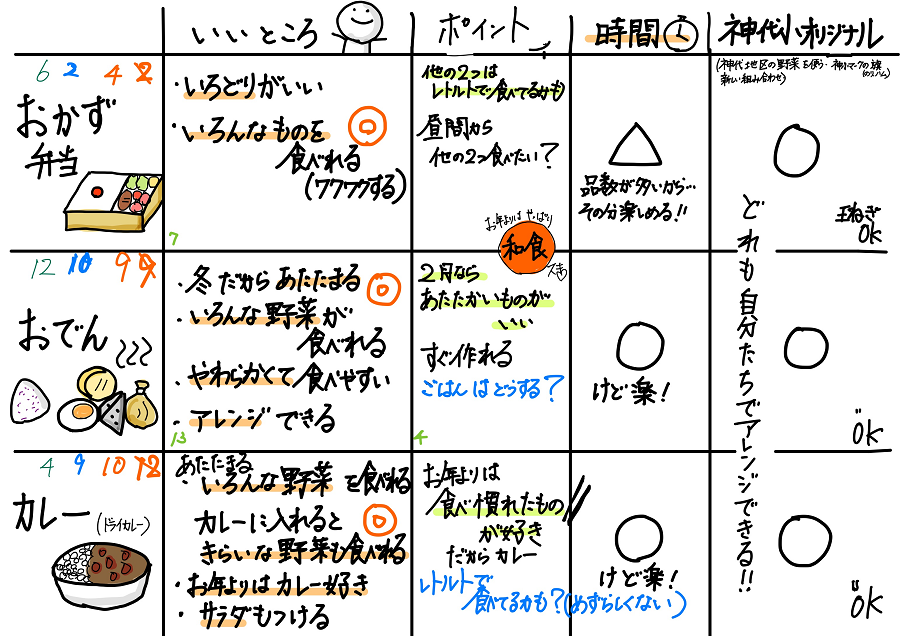 いいところ
ポイント
時間
神代小オリジナル
(神代地区の野菜を使う・神代マークの旗
新しい組み合わせ)
6 2 4 2
おかず
弁当
・いろどりがいい
・いろんなものを
食べれる
(ワクワクする)
7
他の2つは
レトルトで食べてるかも
昼間から
他の2つ食べたい?
品数が多いから…
その分楽しめる!!
玉ねぎ
OK
お年よりは やっぱり
和食
12 10 9 9
おでん
・冬だからあたたまる
・いろんな野菜が
食べれる
・やわらかくて食べやすい
・アレンジできる
13
2月なら
あたたかいものが
いい
すぐ作れる
ごはんはどうする?
4
けど楽!
OK
どれも自分たちでアレンジできる!!
4 9 10 12
カレー
(ドライカレー)
あたたまる
・いろんな野菜を食べれる
カレーに入れると
きらいな野菜も食べれる
・お年よりはカレー好き
・サラダもつける
お年よりは
食べ慣れたもの
が好き
だからカレー
レトルトで
食べてるかも?(めずらしくない)
けど楽!
OK